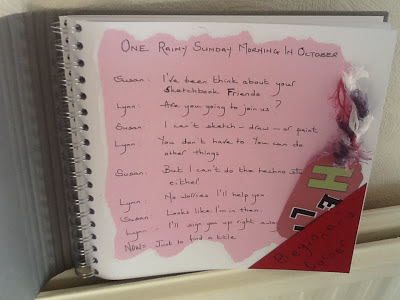 ONE RAINY SUNDAY MORNING IN OCTOBER
Susan: I've been think about your
Sketchbook Friends
Lynn: Are you going to join us?
Susan: I can't sketch - draw - or paint
Lynn: You don't have to You can do
other things
Susan: But I can't do the techno stu
either!
Lynn: No worries I'll help you
Susan: Looks like I'm in then.
Lynn: I'll sign you up right away
NOW= Just to find a title
HE
L
Beginners
Corner